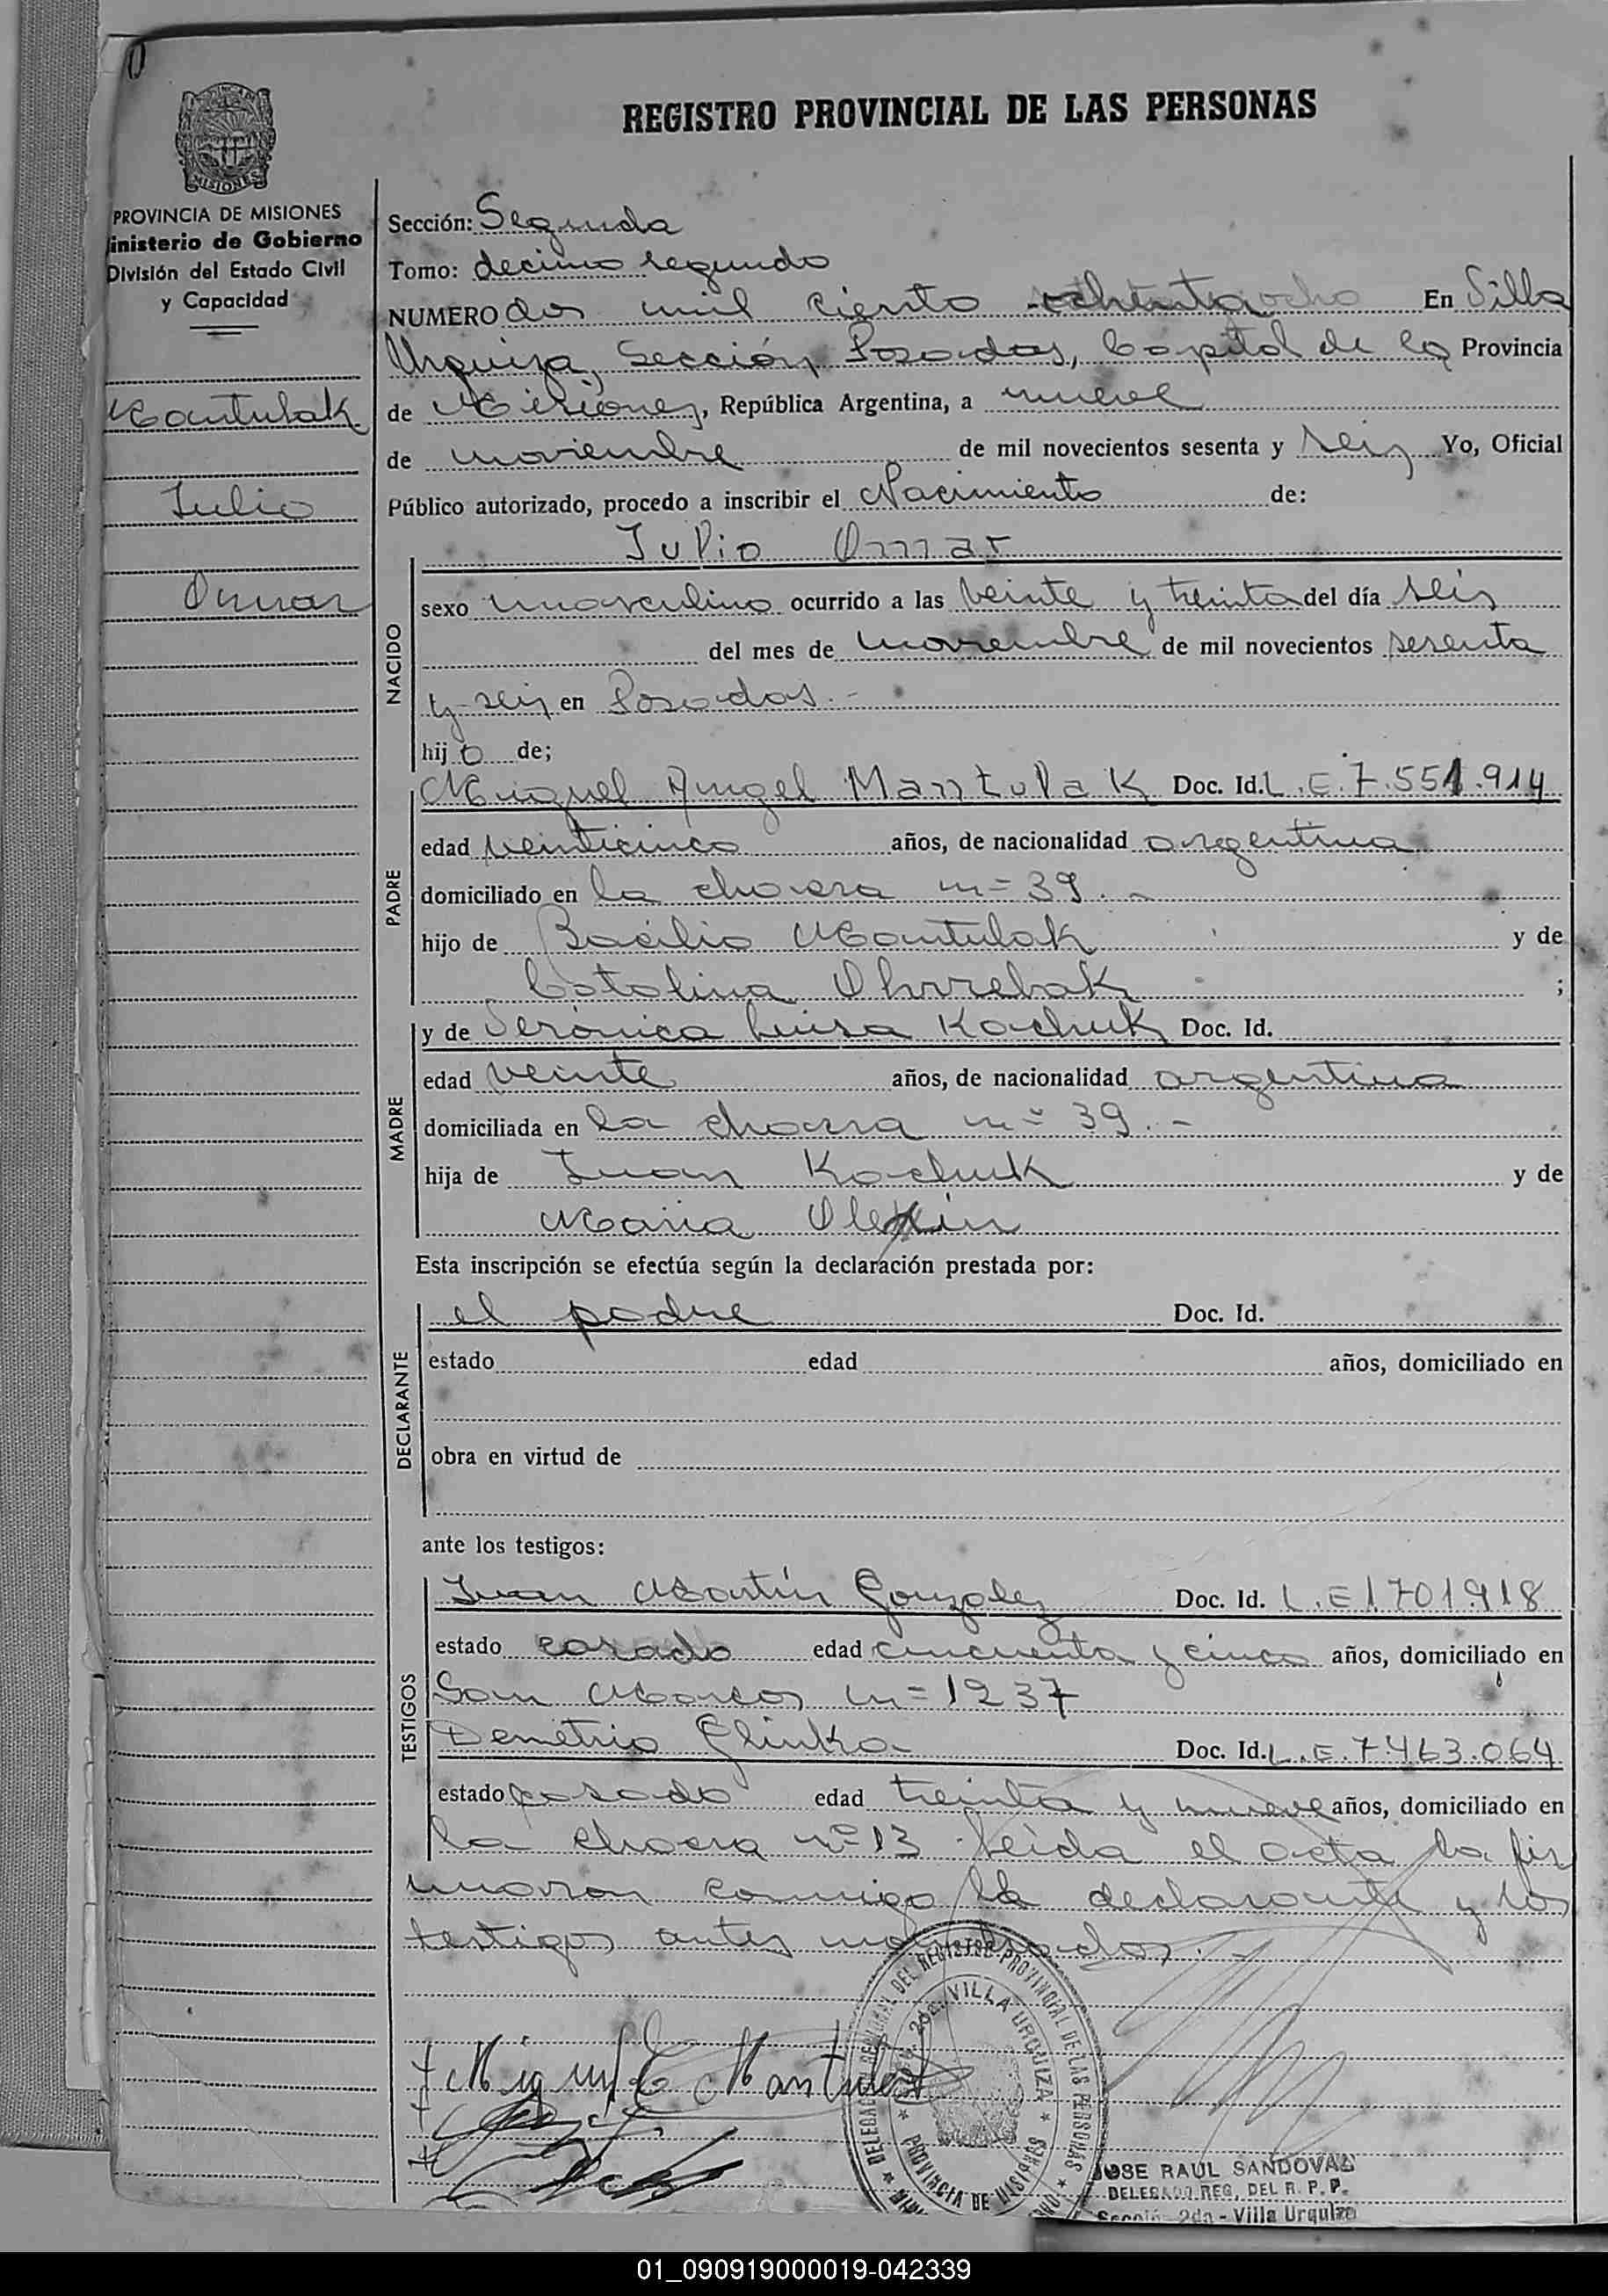 REGISTRO PROVINCIAL DE LAS PERSONAS
MISIONES
PROVINCIA DE MISIONES
inisterio de Gobierno
División del Estado Civil
y Capacidad
Mantulak
Julio
Omar
Sección: Segunda
Tomo: decimo segundo
NUMERO dos mil ciento ochenta ocho En Villa
Urquiza, Sección Posadas, Capital de la Provincia
de Misiones, República Argentina, a nueve
de noviembre de mil novecientos sesenta y seis Yo, Oficial
Público autorizado, procedo a inscribir el Nacimiento de:
Julio Omar
NACIDO
sexo masculino ocurrido a las veinte y treinta del día seis
del mes de noviembre de mil novecientos sesenta
y seis en Posadas.-
hijo de;
PADRE
Miguel Angel Mantulak Doc. Id. L.E.7.551.914
edad veinticinco años, de nacionalidad argentina
domiciliado en la chacra n= 39.-
hijo de Bacilio Mantulak y de
Catalina ;
MADRE
y de Verónica Luisa Kachuk Doc. Id.
edad veinte años, de nacionalidad argentina
domiciliada en la chacra n= 39.-
hija de Juan Kachuk y de
María
Esta inscripción se efectúa según la declaración prestada por:
DECLARANTE
el padre Doc. Id.
estado edad años, domiciliado en
obra en virtud de
ante los testigos:
TESTIGOS
Juan Martín Gonzalez Doc. Id. L.E 1.701.918
estado casado edad cincuenta y cinco años, domiciliado en
San Marcos n= 1237
Demetrio Glinka Doc. Id. L.E.7.463.064
estado casado edad treinta y nueve años, domiciliado en
la chacra nº 13 Leída el acta la fir
maron conmigo el declarante y los
testigos antes mencionados.-
DELEGACION REGIONAL DEL REGISTRO PROVINCIAL DE LAS PERSONAS
Secc. 2da. VILLA URQUIZA
PROVINCIA DE MISIONES
Miguel A Mantulak
JOSE RAUL SANDOVAL
DELEGADO REG. DEL R. P. P.
Sección 2da - Villa Urquiza
01_090919000019-042339